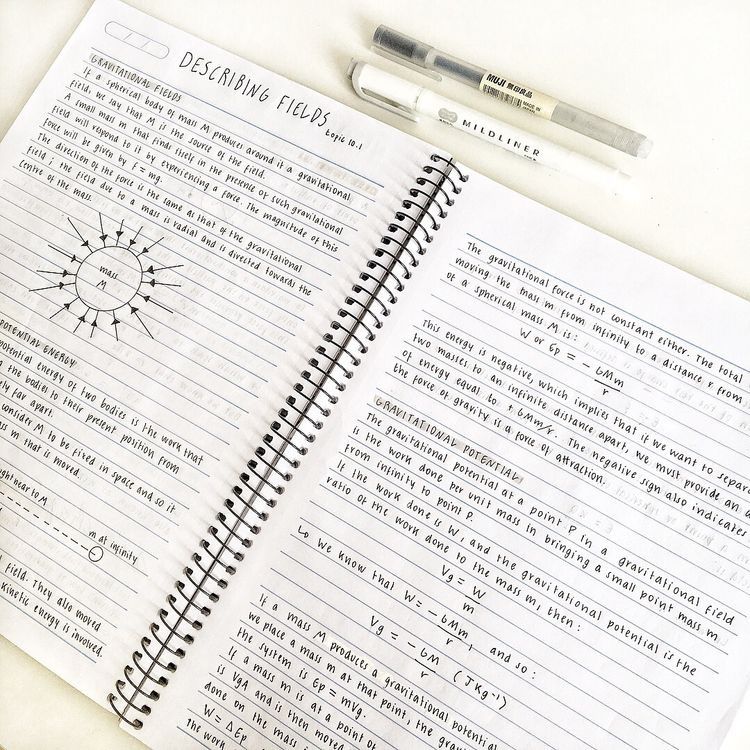 DESCRIBING FIELDS
topic 10.1
GRAVITATIONAL FIELDS
If a spherical body of mass M produces around it a gravitational
field, we say that M is the source of the field.
A small mass m that finds itself in the presence of such gravitational
field will respond to it by experiencing a force. The magnitude of this
force will be given by f = mg.
The direction of the force is the same as that of the gravitational
field; the field due to a mass is radial and is directed towards the
centre of the mass.
mass
M
POTENTIAL ENERGY
potential energy of two bodies is the work that
the bodies to their present position from
far apart.
consider M to be fixed in space and so it
m that is moved.
near to M
m at infinity
field. They also moved
kinetic energy is involved.
The gravitational force is not constant either. The total
moving the mass m from infinity to a distance r from
of a spherical mass M is:
W or Ep = - GMm
r
This energy is negative, which implies that if we want to separa
two masses to an infinite distance apart, we must provide an a
of energy equal to + GMm/r. The negative sign also indicates
the force of gravity is a force of attraction.
GRAVITATIONAL POTENTIAL
The gravitational potential at a point P in a gravitational field
is the work done per unit mass in bringing a small point mass m
from infinity to point P.
If the work done is W, and the gravitational potential is the
ratio of the work done to the mass m, then:
Vg = W
m
↳ we know that W = - GMm, and so:
r
Vg = - GM (JKg⁻¹)
r
If a mass M produces a gravitational potential
we place a mass m at that point, the grav
the system is Ep = mVg.
If a mass m is at a point of
is VgA and is then moved
done on the mass is
W = ΔEp
The work
MUJI 無印良品
MADE IN
JAPAN
MILDLINER